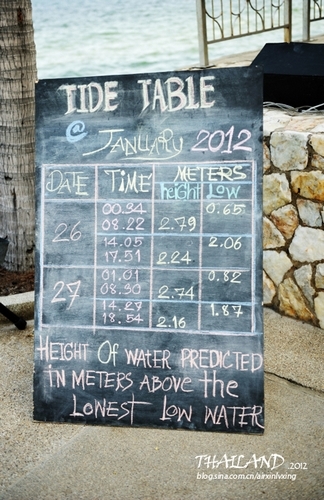 TIDE TABLE
@ JANUARY 2012
DATE TIME METERS
height LOW
26 00.34 0.65
08.22 2.79
14.05 2.06
17.51 2.24
27 01.01 0.82
08.90 2.74
14.27 1.87
18.54 2.16
HEIGHT OF WATER PREDICTED
IN METERS ABOVE the
LOWEST LOW WATER
THAILAND .2012
blog.sina.com.cn/airxinlvxing